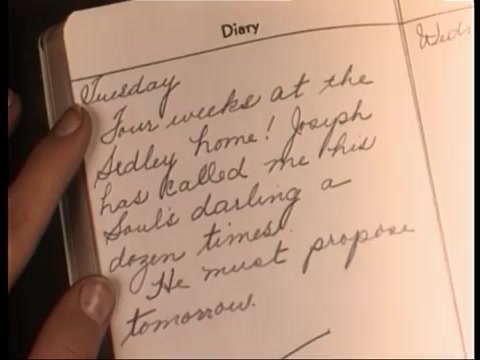 Diary
Tuesday
Four weeks at the
Sedley home! Joseph
has called me his
Soul's darling a
dozen times!
He must propose
tomorrow.
Wedn